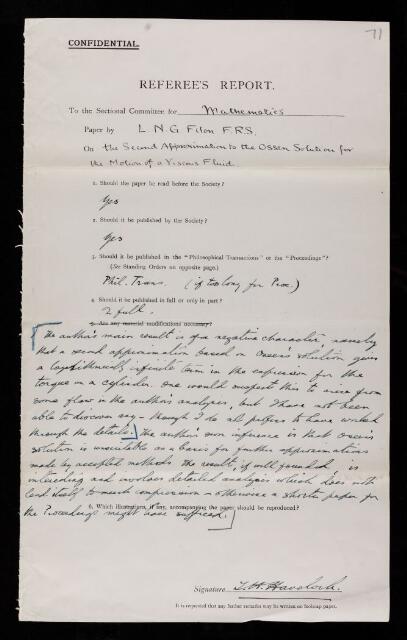 71
CONFIDENTIAL.
REFEREE'S REPORT.
To the Sectional Committee for Mathematics
Paper by L. N. G Filon F.R.S.
On the Second Approximation to the Oseen Solution for
the Motion of a Viscous Fluid.
1. Should the paper be read before the Society?
Yes
2. Should it be published by the Society?
Yes
3. Should it be published in the "Philosophical Transactions" or the "Proceedings"?
(See Standing Orders on opposite page.)
Phil. Trans. (if too long for Proc.)
4. Should it be published in full or only in part?
In full.
5. Are any material modifications necessary?
The author's main result is of a negative character, namely
that a second approximation based on Oseen's solution gives
a logarithmically infinite term in the expression for the
torque on a cylinder. One would suspect this to arise from
some flaw in the author's analysis, but I have not been
able to discover any - though I do not profess to have worked
through the details. The author's own inference is that Oseen's
solution is unsuitable as a basis for further approximations
made by accepted methods. The result, if well founded, is
interesting and involves detailed analysis which does not
lend itself to much compression - otherwise a shorter paper for
6. Which illustrations, if any, accompanying the paper should be reproduced?
the Proceedings might have sufficed.
Signature T. H. Havelock.
It is requested that any further remarks may be written on foolscap paper.